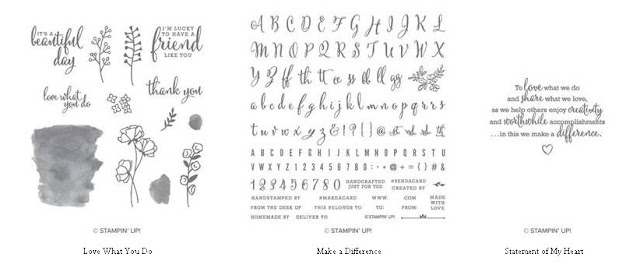 IT'S A
beautiful
day
I'M LUCKY
TO HAVE A
friend
LIKE YOU
love what
you do
thank you
© STAMPIN' UP!
Love What You Do
A B C D E F G H I J K L
M N O P Q R S T U V W X
Y Z ff th tt oo dd ll gg
a b c d e f g h i j k l m n o p q r r s
t u v w x y z & ! ? ( ) @
A B C D E F G H I J K L M N O P Q R S T U
V W X Y Z 1 2 3 4 5 6 7 8 0 : • * @ + = ( ) # &
1 2 3 4 5 6 7 8 0
HANDCRAFTED
JUST FOR YOU
#SENDACARD
CREATED BY
HANDSTAMPED BY #MAKEACARD WWW. .COM
MADE
WITH
LOVE
FROM THE DESK OF THIS BELONGS TO TO: FROM:
HOMEMADE BY DELIVER TO © STAMPIN' UP!
© STAMPIN' UP!
Make a Difference
To love what we do
and share what we love,
as we help others enjoy creativity
and worthwhile accomplishments
...in this we make a difference.
© STAMPIN' UP!
Statement of My Heart